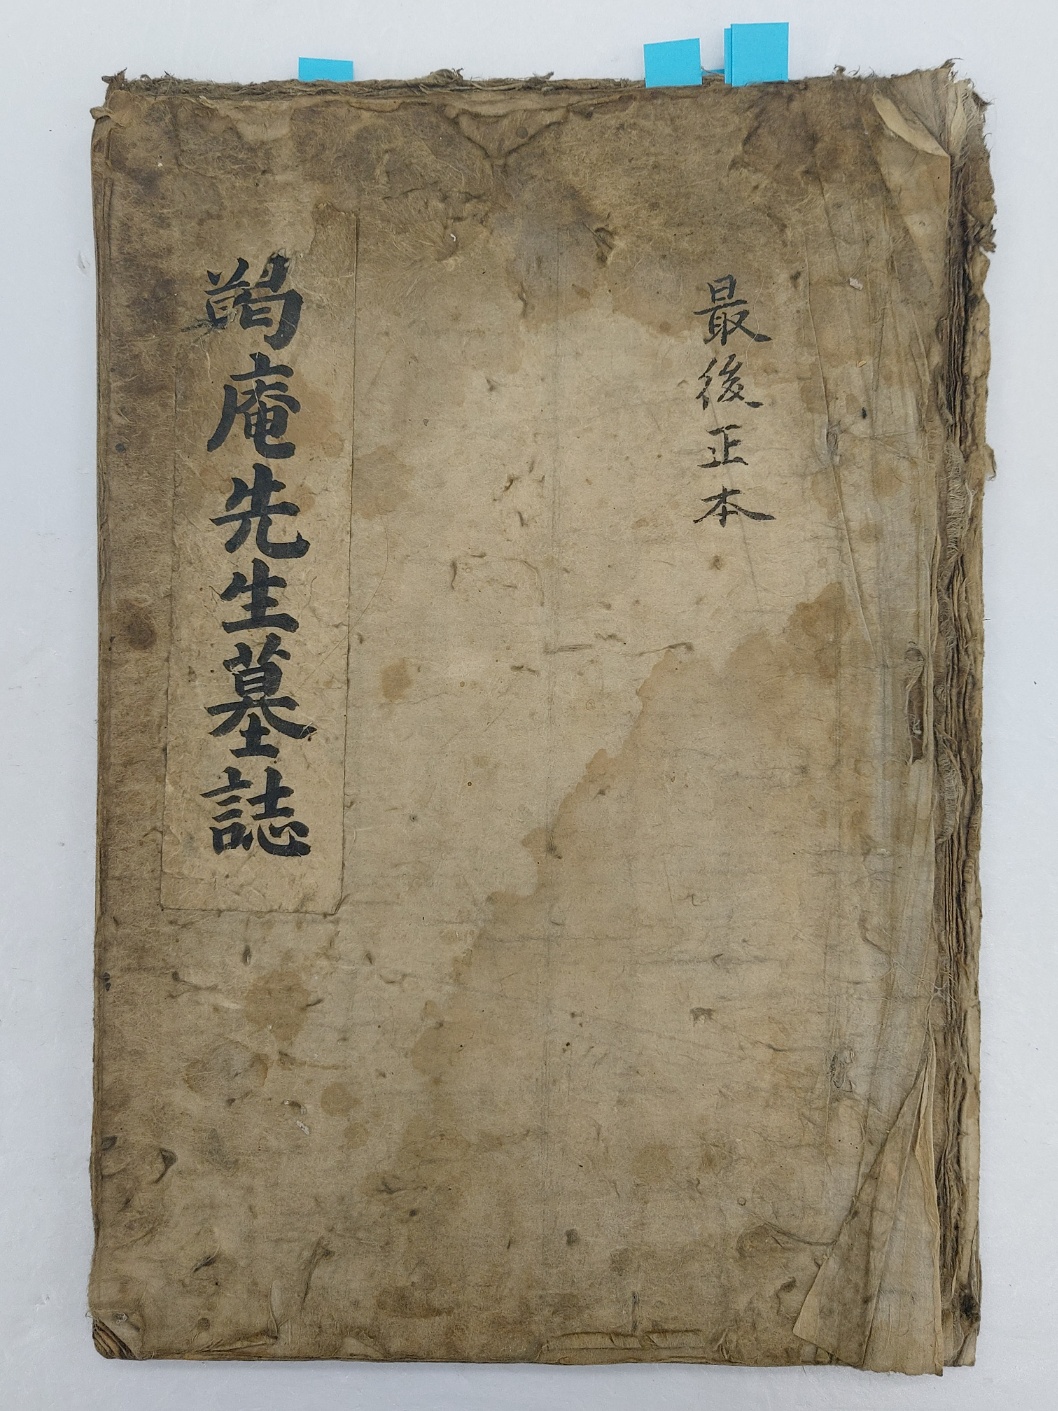 最後正本
庵先生墓誌